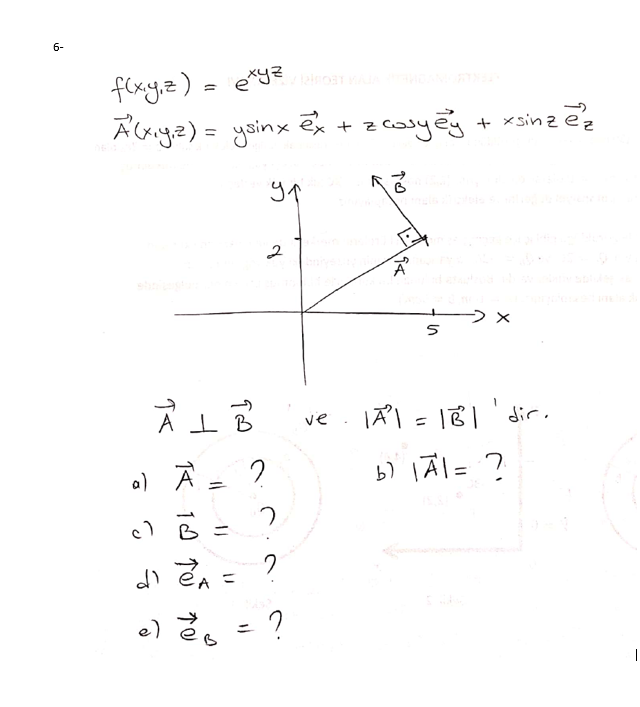 6-
f(x,y,z) = e^xyz
A⃗(x,y,z) = ysinx e⃗x + z cosy e⃗y + xsinz e⃗z
y
B⃗
2
A⃗
x
5
A⃗ ⊥ B⃗ ve |A⃗| = |B⃗| 'dir.
a) A⃗ = ? b) |A⃗| = ?
c) B⃗ = ?
d) e⃗A = ?
e) e⃗B = ?